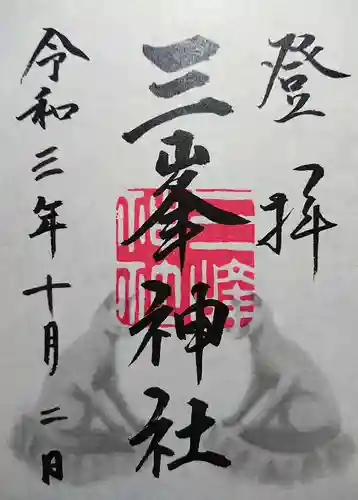 登拝
三峯神社
令和三年十月二日